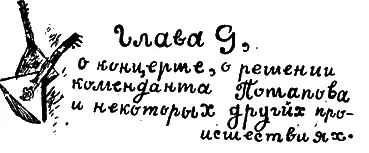 Глава 9,
о концерте, о решении
коменданта Потапова
и некоторых других про-
исшествиях.